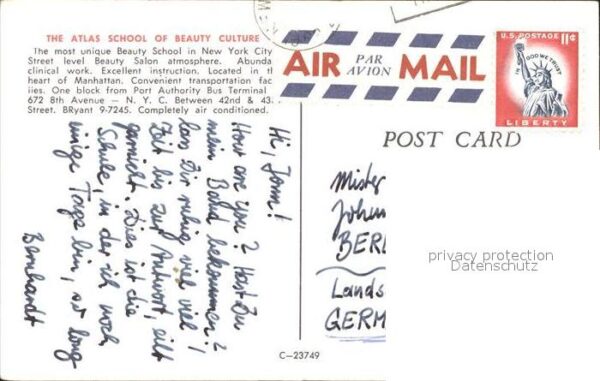 THE ATLAS SCHOOL OF BEAUTY CULTURE
The most unique Beauty School in New York City
Street level Beauty Salon atmosphere. Abunda
clinical work. Excellent instruction. Located in th
heart of Manhattan. Convenient transportation fac
ies. One block from Port Authority Bus Terminal
672 8th Avenue — N. Y. C. Between 42nd & 43
Street. BRyant 9-7245. Completely air conditioned.
AIR PAR AVION MAIL
U.S. POSTAGE 11¢
IN GOD WE TRUST
LIBERTY
POST CARD
Hi, Jonn!
How are you? Hast Du
mein Band bekommen?
Lass Dir ruhig viel viel
Zeit bis zur Antwort, eilt
garnicht. Dies ist die
Schule, in der ich noch
einige Tage bin, so long
Bernhardt
Mister
Johen
BERL
Lands
GERM
privacy protection
Datenschutz
C-23749